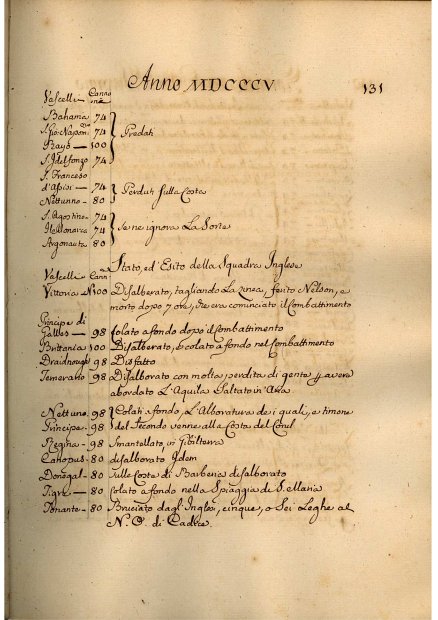 Anno MDCCCV.
131
Vascelli Canno
ni
Bahama 74
S. Gio: Nepom.no 74 Predati
Rayo — 100
S. Idelfonzo 74
S. Francesco
d'Assisi — 74 Perduti sulla Costa
Nettunno — 80
S. Agostino 74
Monarca 74 Se ne ignora La Sorte
Argonauta 80
Stato, ed' Esito della Squadra Inglese
Vascelli Cann:
Vittoria N.100 Disalberato, tagliando La Linea, ferito Nelson, e
morto dopo 7 ore, che era cominciato il Combattimento
Principe di
Galles — 98 Colato a fondo dopo il Combattimento
Brittania 100 Disalberato, e colato a fondo nel Combattimento
Draidnought 98 Disfatto
Temerario 98 Disalborato con molta perdita di gente p avere
abordato L'Aquila Saltato in Aria
Nettuno 98 Colati a fondo, L'Alboratura de i quali, e timone
Principe 98 del Secondo venne alla Costa del Conil
Regina — 98 Smantellato, in Gibilterra
Canopus — 80 disalborato Idem
Donegal — 80 Sulle Coste di Barberia disalborato
Tigre — 80 Colato a fondo nella Spiaggia di S. Maria
Tonante — 80 Bruciato dagl' Inglesi, cinque, o Sei Leghe al
N. O. di Cadice.